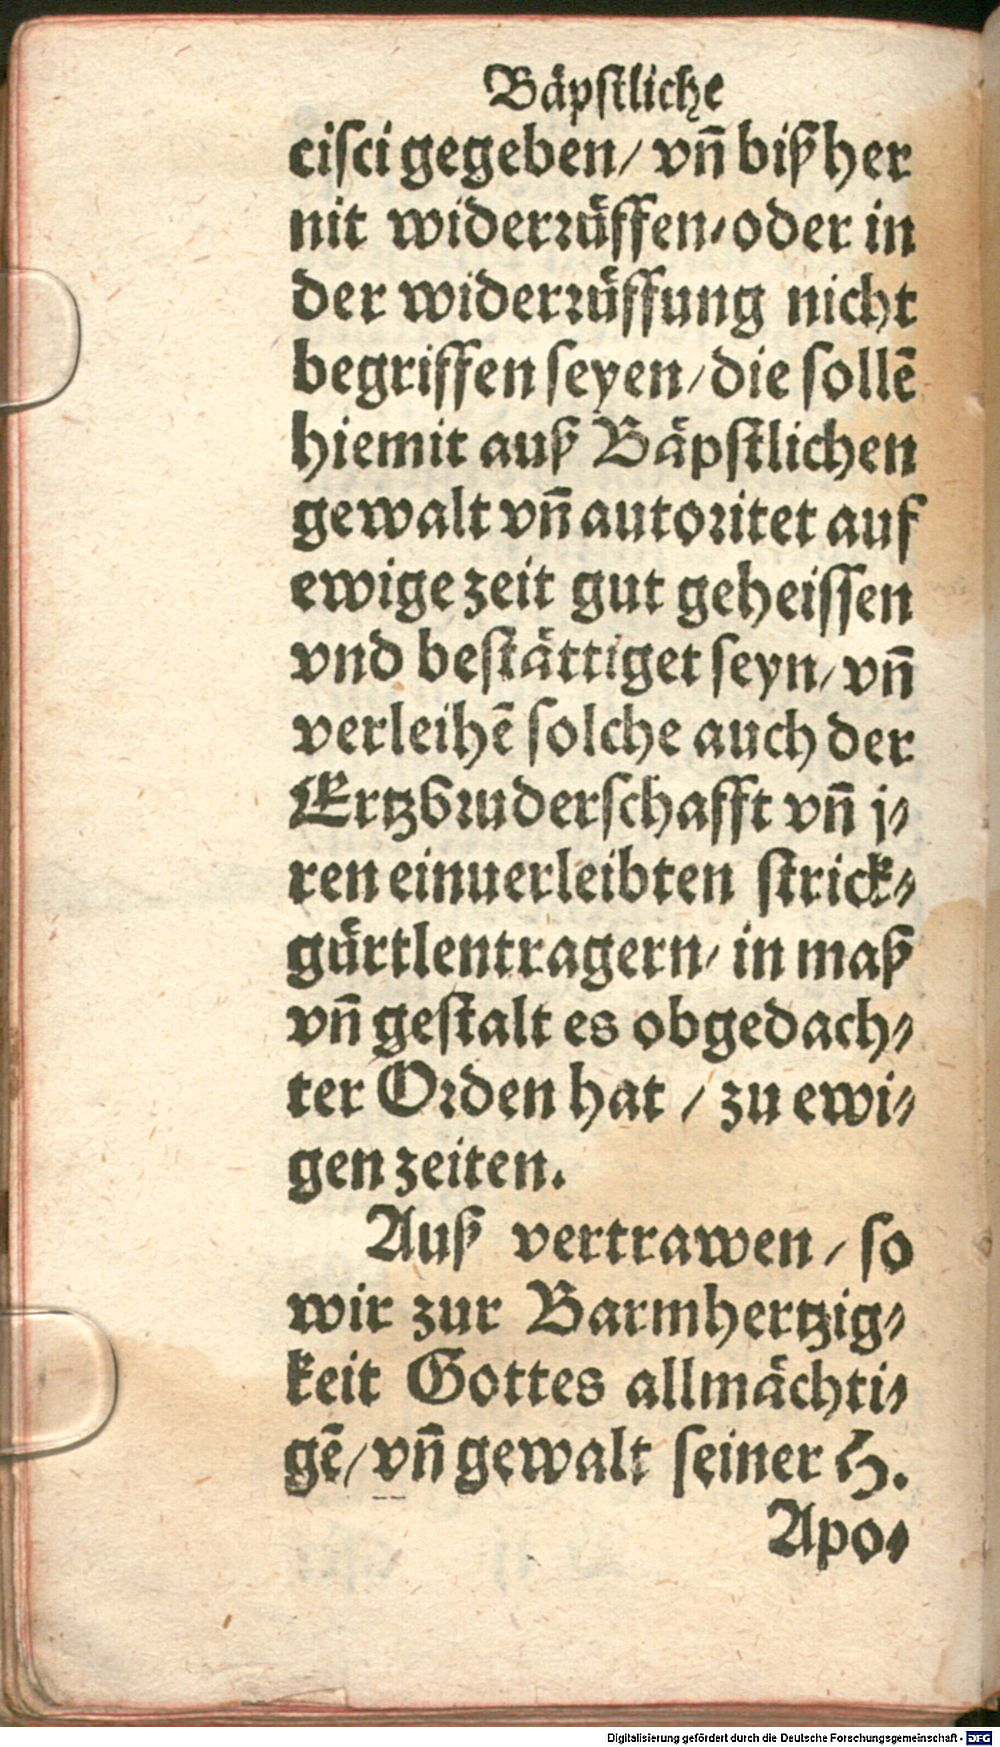 Bäpstliche
cisci gegeben/ vñ bißher
nit widerrüffen/ oder in
der widerrüffung nicht
begriffen seyen/ die sollē
hiemit auß Bäpstlichen
gewalt vñ autoritet auf
ewige zeit gut geheissen
vnd bestättiget seyn/ vñ
verleihē solche auch der
Ertzbruderschafft vñ j⸗
ren einuerleibten strick⸗
gürtlentragern/ in maß
vñ gestalt es obgedach⸗
ter Orden hat / zu ewi⸗
gen zeiten.
Auß vertrawen / so
wir zur Barmhertzig⸗
keit Gottes allmächti⸗
gē/ vñ gewalt seiner H.
Apo⸗
Digitalisierung gefördert durch die Deutsche Forschungsgemeinschaft - DFG